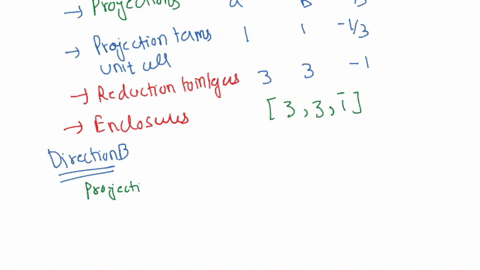 → Projections a b
→ Projection terms 1 1 -1/3
unit cell
→ Reduction to integers 3 3 -1
→ Enclosures [3,3,1̄]
Direction B
Projecti